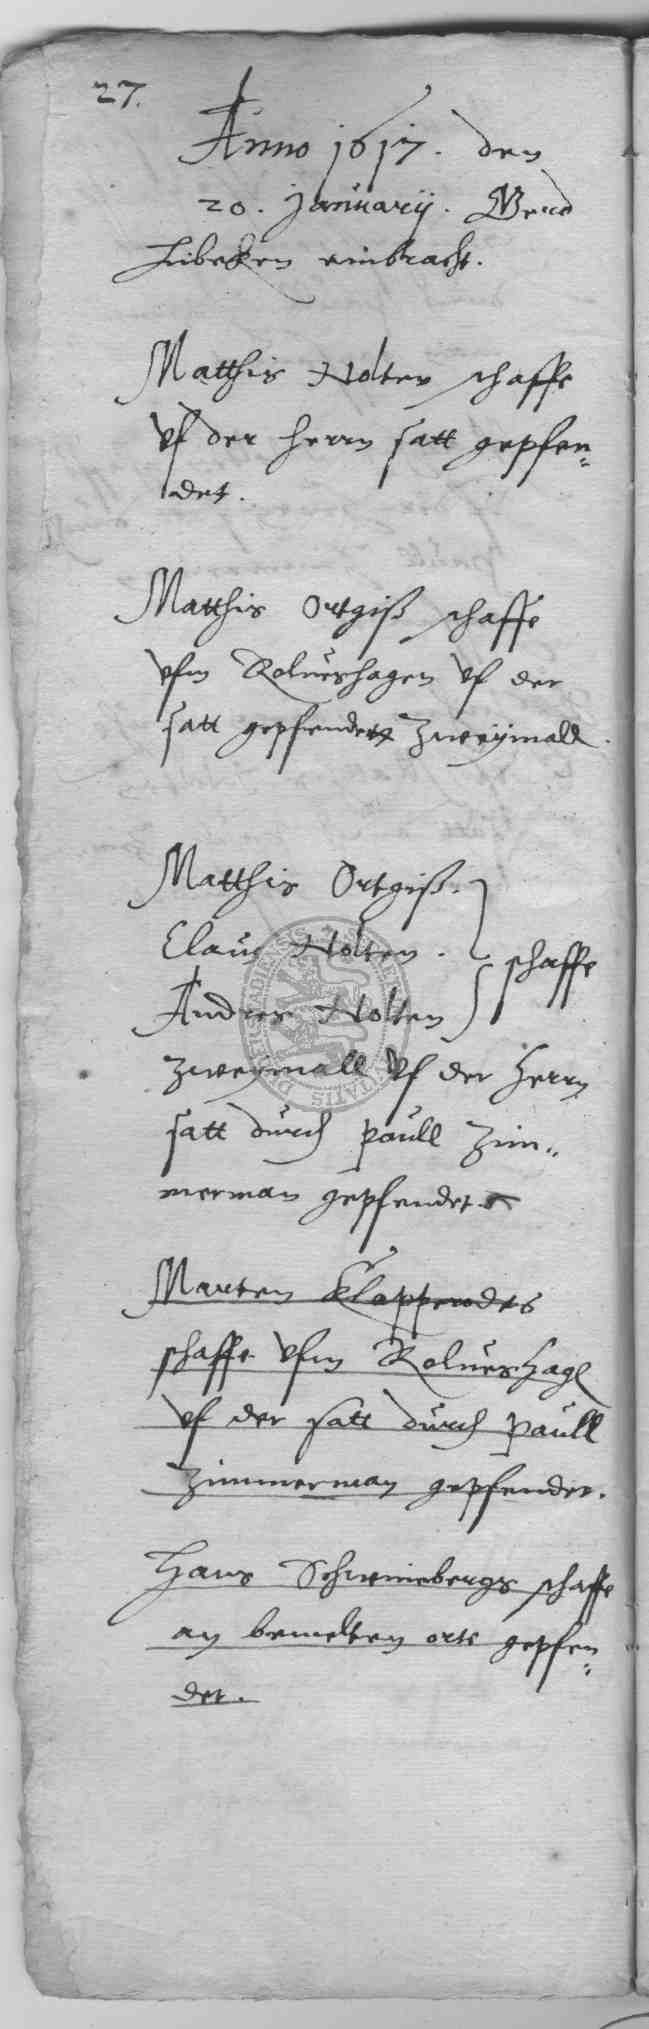 27.
Anno 1617. den
20. Januarij. Berd
Libeken einbracht.
Matthis Nolten schaffe
vf der herrn satt gepfen=
det.
Matthis Ortgiß schaffe
vfm Rolueshagen vf der
satt gepfendet zweymall.
Matthis Ortgiß.
Claus Nolten. schaffe
Andres Nolten
zweymall vf der Herrn
satt durch Paull Zim=
merman gepfendet.
Marten Klapperodes
schaffe vfm Rolueshag
vf der satt durch Paull
Zimmerman gepfendet.
Hans Schweinebergs schaffe
an bemelten orte gepfen=
det.